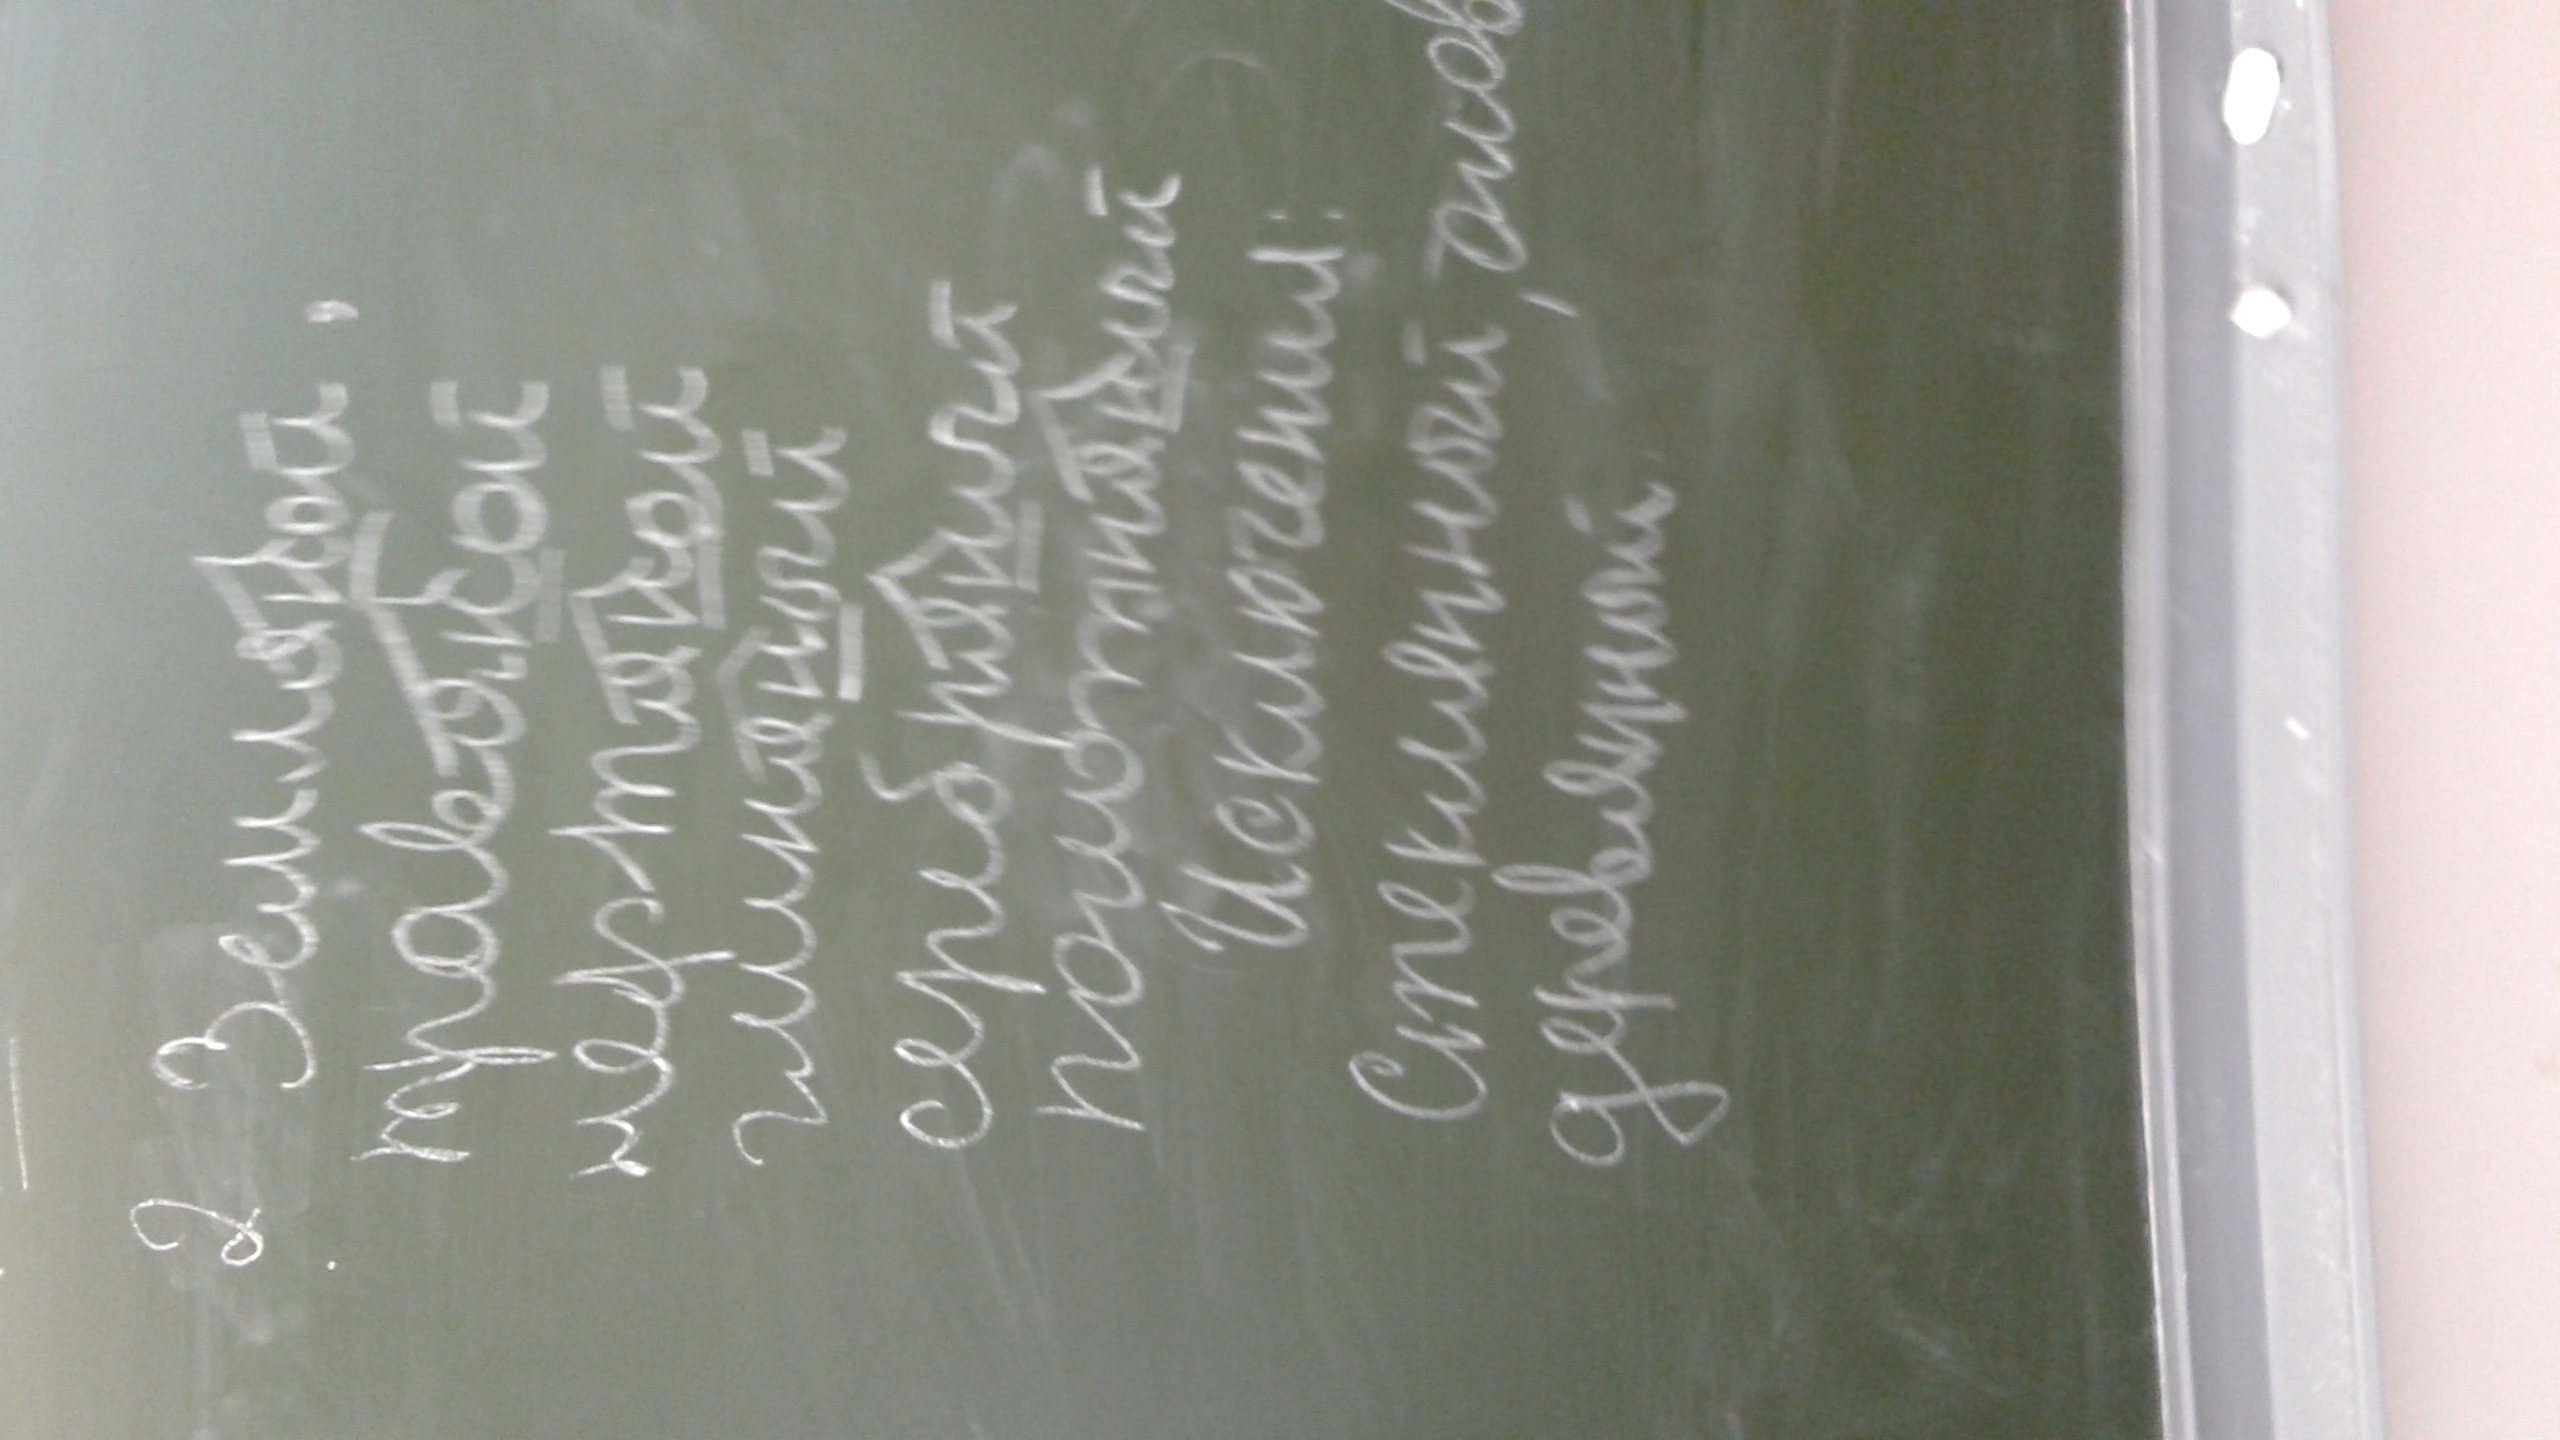 2. Земляной,
травяной
нефтяной
глиняный
серебряный
полотняный
Исключения:
Стеклянный, олов
деревянный